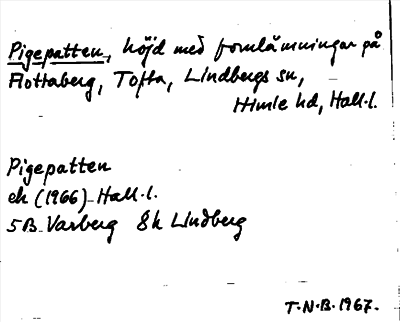 Pigepatten, höjd med fornlämningar på
Flottaberg, Tofta, Lindbergs sn,
Himle hd, Hall. l.
Pigepatten
ek (1966) Hall. l.
5B Varberg 8h Lindberg
T.N.B. 1967.